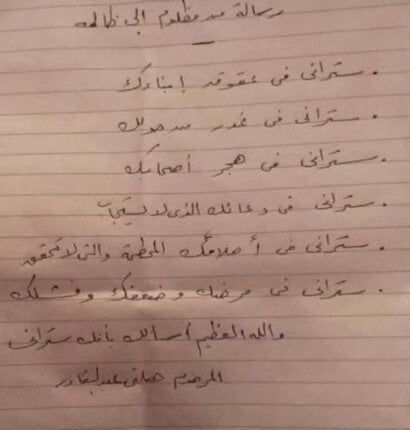 رسالة من مظلوم إلى ظالمه
. ستراني في عقوق أبناءك
. ستراني في غدر من حولك
. ستراني في هجر أصحابك
. ستراني في دعائك الذي لا يستجاب
. ستراني في أحلامك المحطمة والتي لا تحقق
. ستراني في مرضك وضعفك وفشلك
والله العظيم أسألك بأنك ستراني
المرحوم عبدالقادر